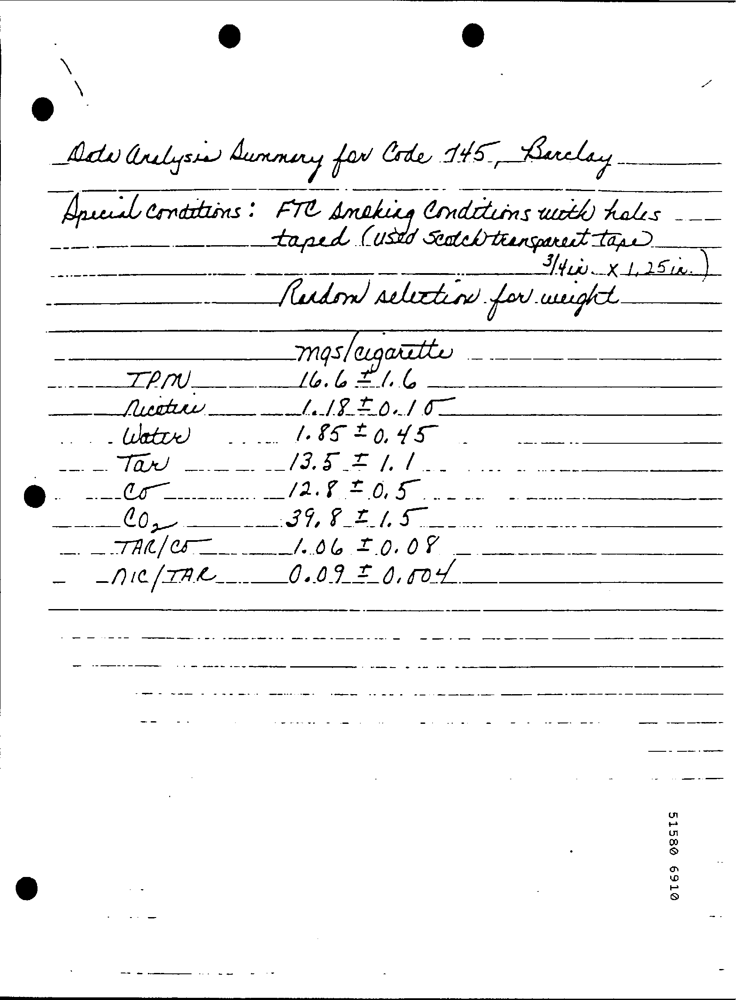 Data Analysis Summary for Code 745, Barclay
Special conditions: FTC Smoking Conditions with holes
taped (used Scotch transparent tape
3/4 in. X 1.25 in.)
Random selection for weight
mgs/cigarette
TPM 16.6 ± 1.6
Nicotine 1.18 ± 0.10
Water 1.85 ± 0.45
Tar 13.5 ± 1.1
CO 12.8 ± 0.5
CO₂ 39.8 ± 1.5
TAR/CO 1.06 ± 0.08
NIC/TAR 0.09 ± 0.004
51580 6910